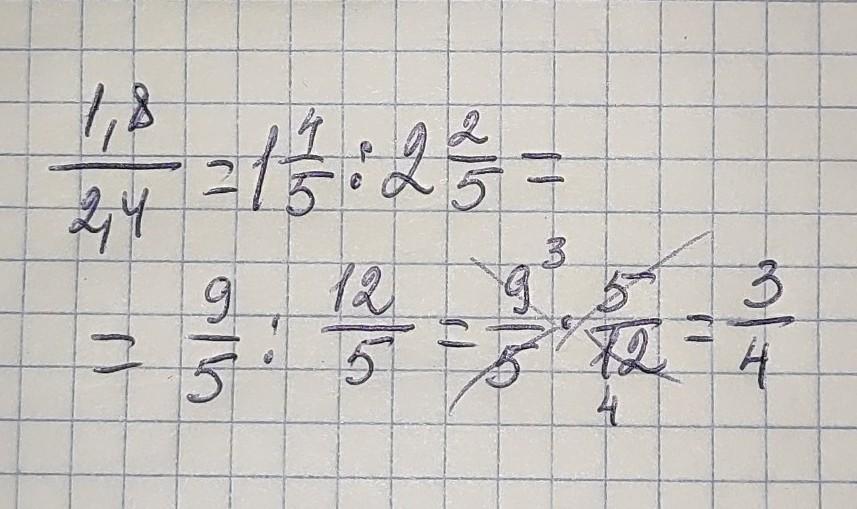 1,8/2,4 = 1 4/5 : 2 2/5 =
= 9/5 : 12/5 = 9 3/5 · 5/12 4 = 3/4